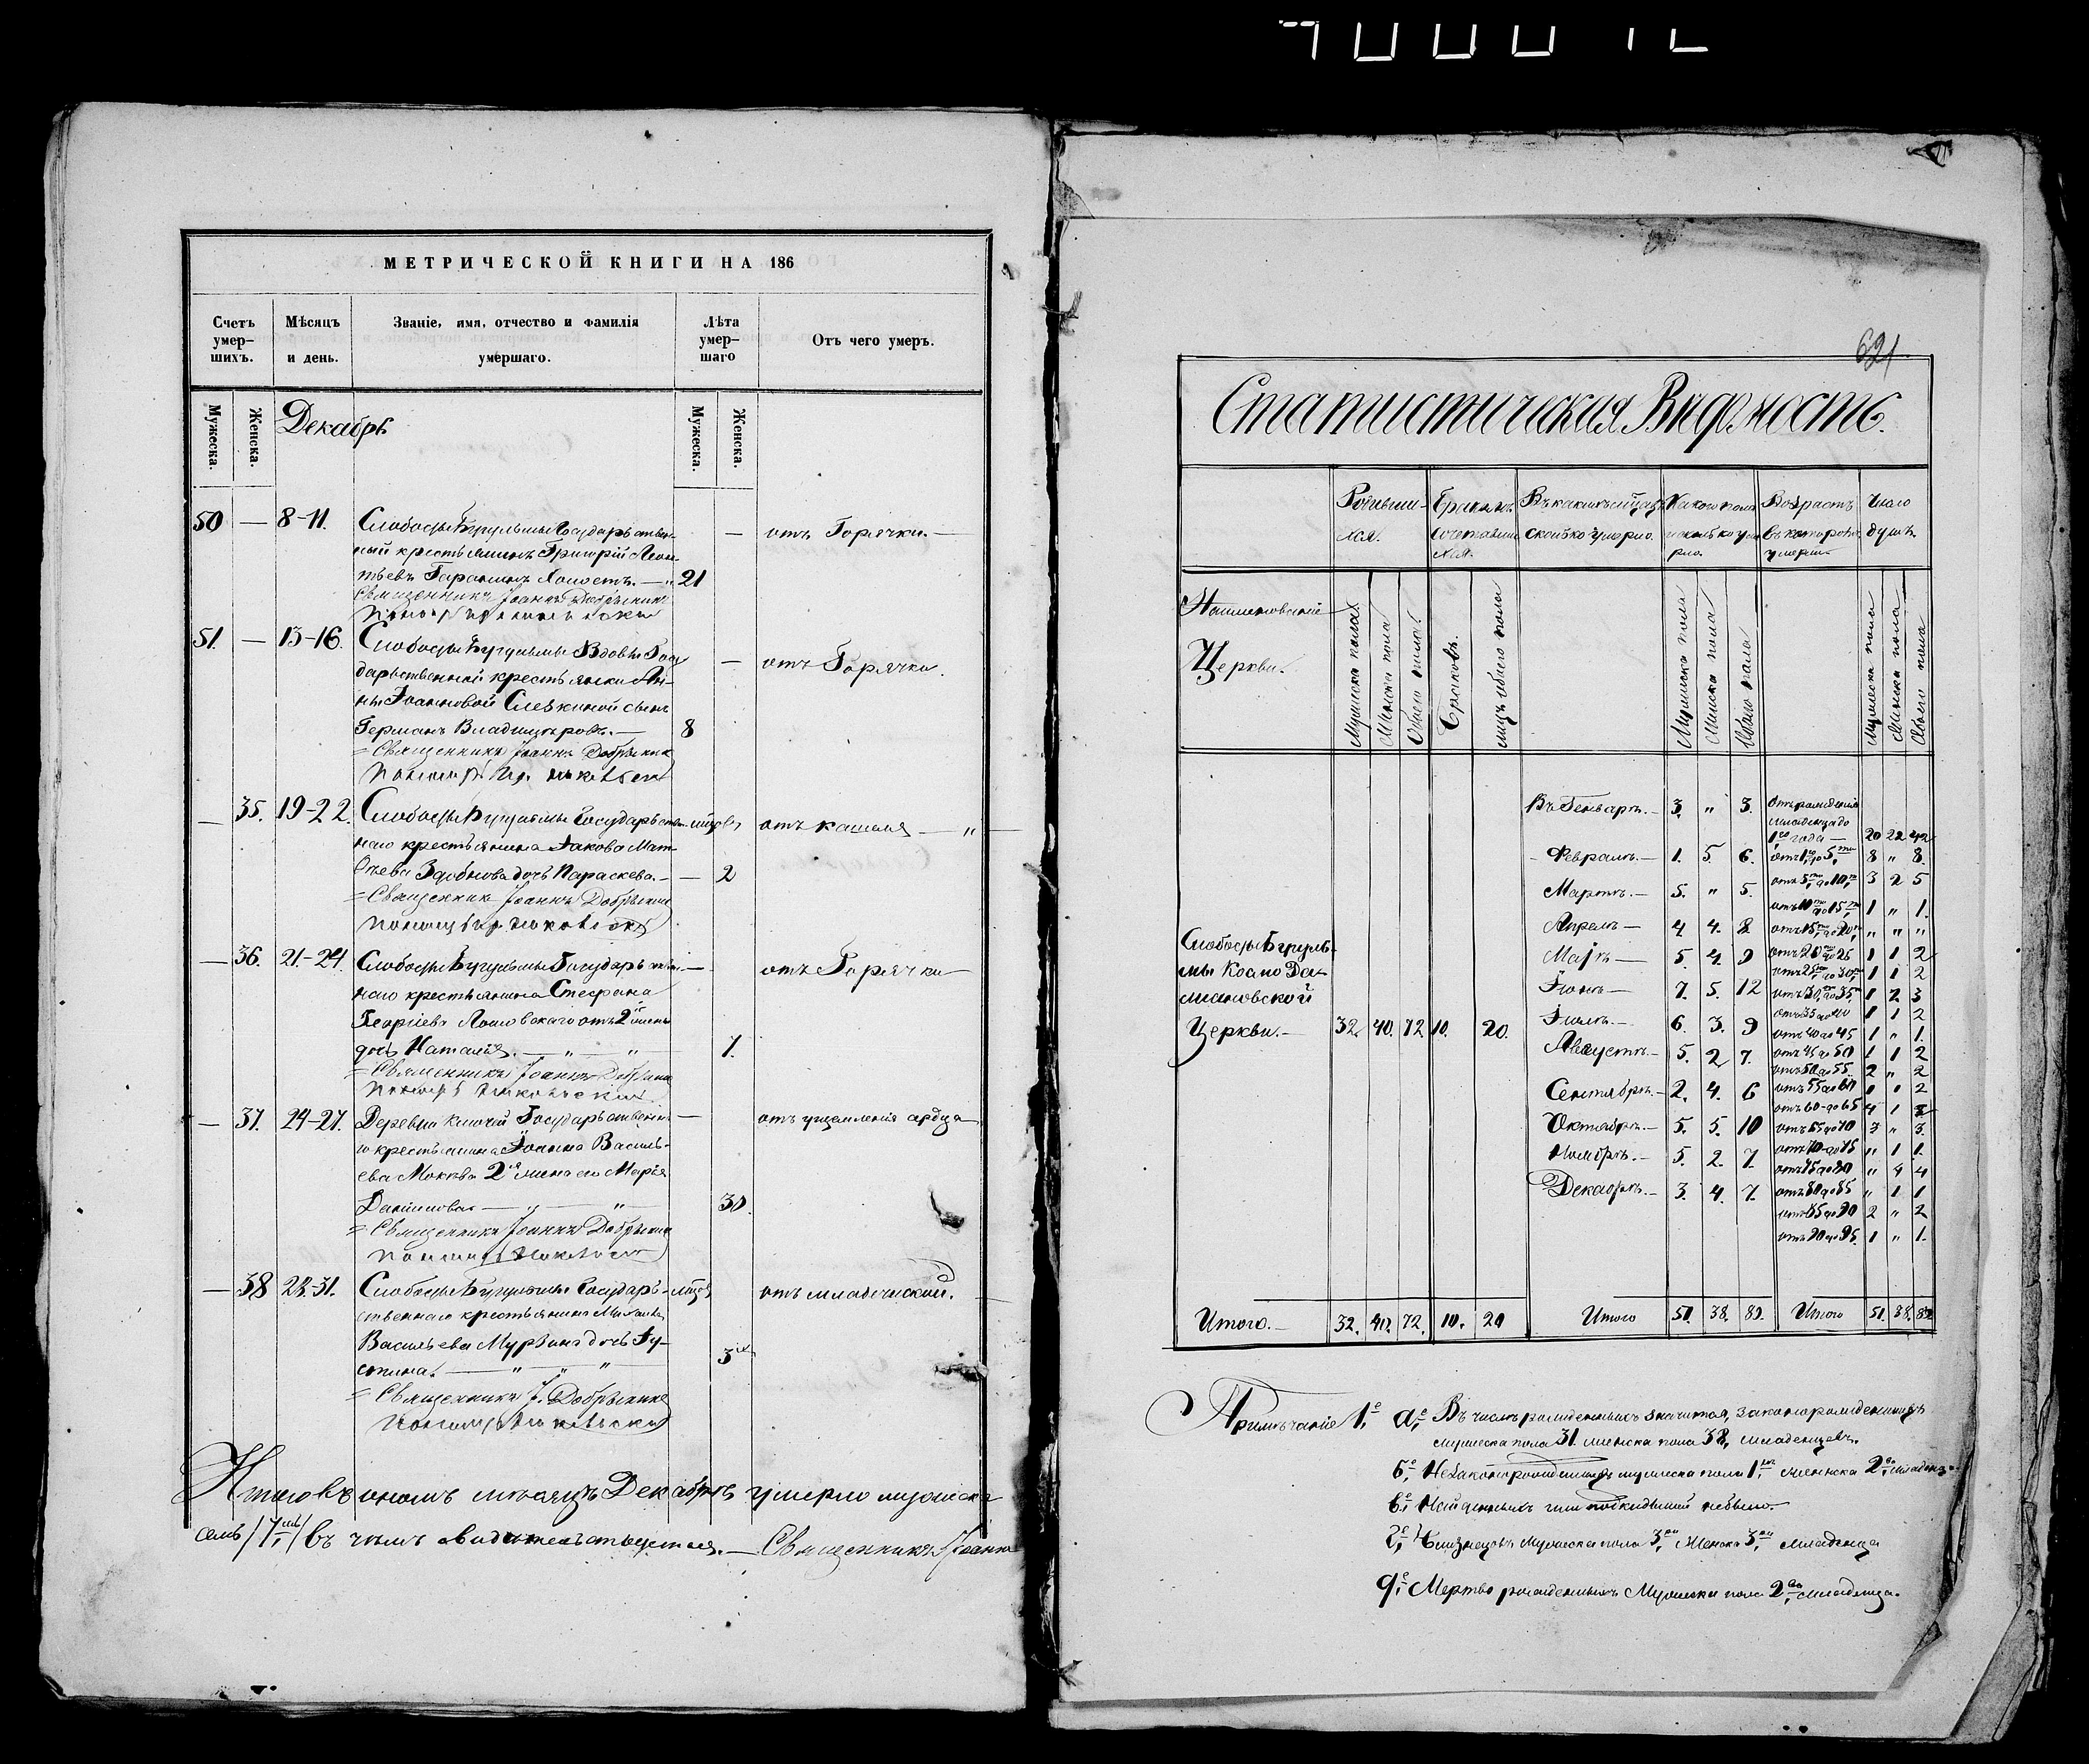 МЕТРИЧЕСКОЙ КНИГИ НА 186
Счетъ умер-шихъ.
Мѣсяцъ и день.
Званіе, имя, отчество и фамилія умершаго.
Лѣта умер-шаго
Отъ чего умеръ.
Мужеска.
Женска.
Декабрь
Мужеска.
Женска.
50 — 8-11. Слободы Бугульмы Государствен- — отъ Горячки. —
ный крестьянинъ Григорій Леон-
тьевъ Гаранинъ Холостъ. — 21
Священникъ Іоаннъ Добрынинъ
51. — 13-16. Слободы Бугульмы Вдовы Госу — отъ Горячки.
дарственной крестьянки Ан-
ны Іоанновой Слевкиной сынъ
Германъ Владиміровъ. — 8
= Священникъ Іоаннъ Добрынинъ
— 35. 19-22. Слободы Бугульмы Государствен- мѣсяцовъ отъ кашля — „ —
наго крестьянина Іакова Мат-
ѳѣева Здобнова дочь Параскева. — — 2
= Священникъ Іоаннъ Добрынинъ
— 36. 21-24. Слободы Бугульмы Государствен- — отъ Горячки —
наго крестьянина Стефана
Георгіева Лошовскаго отъ 2й жены
дочь Наталія. — „ — „ 1.
= Священникъ Іоаннъ Добрынинъ
— 37. 24-27. Деревни Ключей Государственна- — отъ ущемленія сердца
го крестьянина Іоанна Василь-
ева Моквва 2я жена его Марія
Данилова — „ — „ 30.
= Священникъ Іоаннъ Добрынинъ
— 38 28-31. Слободы Бугульмы Государ- мѣсяц. отъ младенческой.
ственнаго крестьянина Михаила
Васильева Мурзина дочь Іу-
стина. — „ „ „ 3хъ
= Священникъ І. Добрынинъ
Итого въ ономъ мѣсяцѣ Декабрѣ умерло мужеска
семь /7мь/ въ чемъ свидѣтельствуетъ. — Священникъ Іоаннъ
621
Статистическая Вѣдомость.
Родивши-хся.
Бракомъ сочетавши хся.
Въ какихъ мѣсяцахъ сколько умерло.
Какого пола и сколько умерло.
Возрастъ въ которомъ умерли
Число душъ.
Наименованіе Церкви.
Мужеска пола
Женска пола
Обоего пола
Браковъ.
лицъ обоего пола
Мужеска пола
Женска пола
Обоего пола
Мужеска пола
Женска пола
Обоего пола
Слободы Бугуль-
мы Космо Да-
міановской
Церкви. — 32 40. 72 10. 20.
Въ Генварѣ. — 3. „ 3.
Февралѣ. — 1. 5. 6.
Мартѣ. — 5. „ 5.
Апрелѣ — 4 4. 8.
Маѣ — 5. 4. 9
Іюнѣ — 7. 5. 12
Іюлѣ. — 6. 3. 9
Августѣ. — 5. 2 7.
Сентябрѣ. — 2. 4. 6
Октябрѣ. — 5. 5. 10
Ноябрѣ. — 5. 2. 7.
Декабрѣ. — 3. 4. 7.
Отъ рожденія
младенца до
1го года — 20 22 42
отъ 1го до 5ти 8 „ 8.
отъ 5ти до 10ти 3 2 5
отъ 10ти до 15ти 1 „ 1.
отъ 15ти до 20 „ „ „
отъ 20ти до 25 1 1 2
отъ 25ти до 30ти 1 1 2
отъ 30ти до 35ти 1 2 3
отъ 35 до 40 1 1 2
отъ 40 до 45 1 „ 1.
отъ 45 до 50 1 1 2
отъ 50 до 55 2 „ 2
отъ 55 до 60 1 1 2
отъ 60 до 65 4 1
отъ 65 до 70 3 „ 3.
отъ 70 до 75 „ 1 1.
отъ 75 до 80 „ 4 4
отъ 80 до 85 „ 1 1
отъ 85 до 90 2 „ 2
отъ 90 до 95. 1 „ 1.
Итого. — 32. 40. 72. 10. 20 Итого 51. 38. 89. Итого 51. 38. 89
Примѣчаніе 1е, а, Въ числѣ рожденныхъ значится, законорожденныхъ
мужеска пола 31. женска пола 38, младенцевъ.
б, Незаконнорожденныхъ мужеска пола 1нъ, женска 2ва младенца
в, Найденныхъ или подкидышей небыло. —
г, Близнецовъ мужеска пола 3ри женска 3ри младенца
д, Мертво рожденныхъ Мужеска пола 2ва младенца.